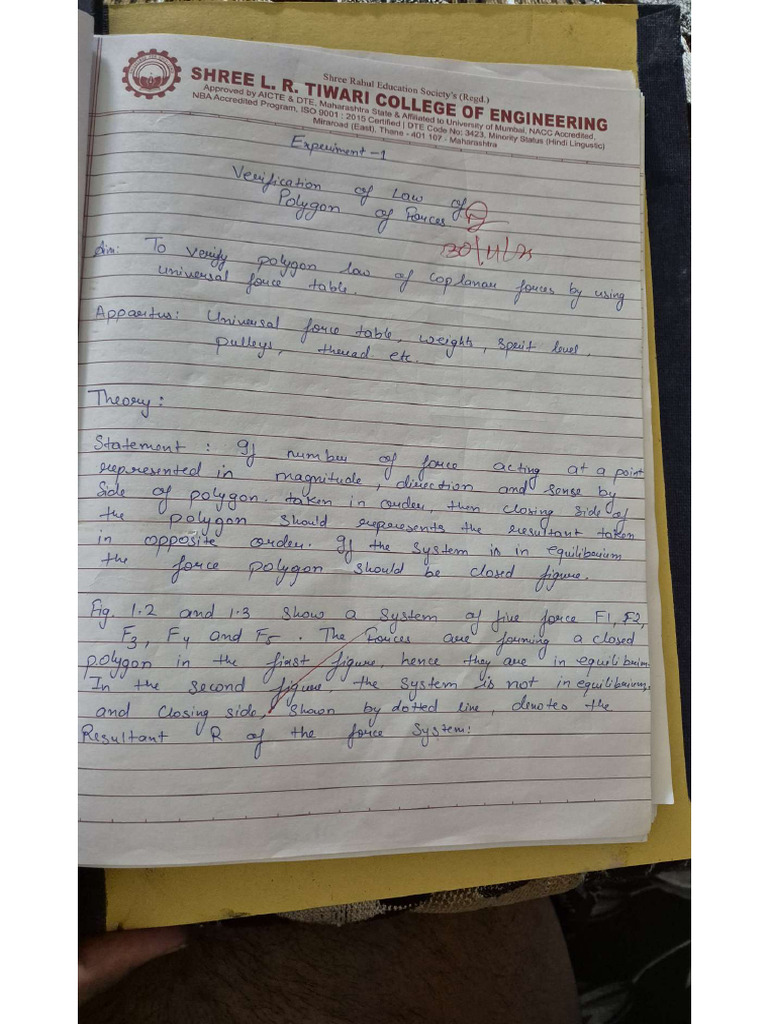 Shree Rahul Education Society's (Regd.)
SHREE L. R. TIWARI COLLEGE OF ENGINEERING
Approved by AICTE & DTE, Maharashtra State & Affiliated to University of Mumbai, NACC Accredited,
NBA Accredited Program, ISO 9001 : 2015 Certified | DTE Code No; 3423, Minority Status (Hindi Lingustic)
Miraroad (East), Thane - 401 107 - Maharashtra
Experiment -1
Verification of Law of
Polygon of Forces
Aim: To verify polygon law of Coplanar forces by using
universal force table.
Apparatus: Universal force table, weights, spirit level,
pulleys, thread etc.
Theory:
Statement : If number of force acting at a point
represented in magnitude, direction and sense by
side of polygon. taken in order, then closing side of
the polygon should represents the resultant taken
in opposite order. If the system is in equilibrium
the force polygon should be closed figure.
Fig. 1.2 and 1.3 show a system of five force F1, F2,
F3, F4 and F5. The Forces are forming a closed
polygon in the first figure, hence they are in equilibrim.
In the second figure, the system is not in equilibrium.
and closing side, shown by dotted line, denotes the
Resultant R of the force System: